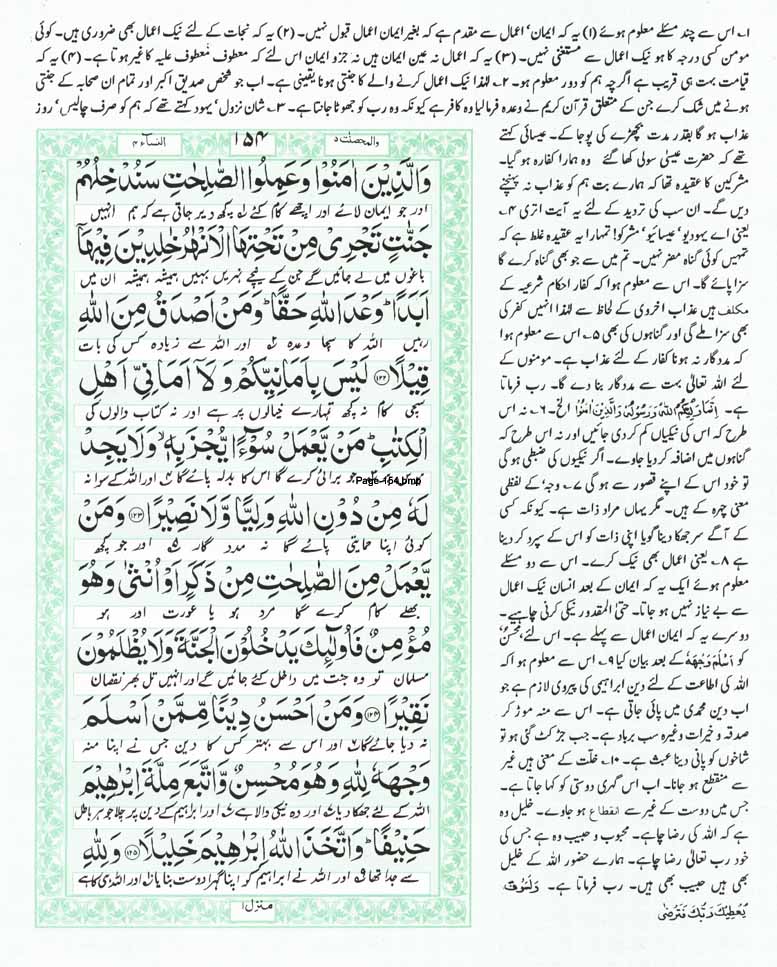 ۱؎ اس سے چند مسئلے معلوم ہوئے (۱) یہ کہ ایمان' اعمال سے مقدم ہے کہ بغیر ایمان اعمال قبول نہیں۔ (۲) یہ کہ نجات کے لئے نیک اعمال بھی ضروری ہیں۔ کوئی
مومن کسی درجہ کا ہو نیک اعمال سے مستغنی نہیں۔ (۳) یہ کہ اعمال نہ عین ایمان ہیں نہ جزو ایمان اس لئے کہ معطوف' معطوف علیہ کا غیر ہوتا ہے۔ (۴) یہ کہ
قیامت بہت ہی قریب ہے اگرچہ ہم کو دور معلوم ہو۔ ۲؎ لہٰذا نیک اعمال کرنے والے کا جنتی ہونا یقینی ہے۔ اب جو شخص صدیق اکبر اور تمام ان صحابہ کے جنتی
ہونے میں شک کرے جن کے متعلق قرآن کریم نے وعدہ فرمالیا وہ کافر ہے کیونکہ وہ رب کو جھوٹا جانتا ہے۔ ۳؎ شان نزول' یہود کہتے تھے کہ ہم کو صرف چالیس' روز
عذاب ہو گا بقدر مدت بچھڑے کی پوجا کے۔ عیسائی کہتے
تھے کہ حضرت عیسیٰ سولی کھا گئے وہ ہمارا کفارہ ہو گیا۔
مشرکین کا عقیدہ تھا کہ ہمارے بت ہم کو عذاب نہ پہنچنے
دیں گے۔ ان سب کی تردید کے لئے یہ آیت اتری ۴؎
یعنی اے یہودیو' عیسائیو' مشرکو! تمہارا یہ عقیدہ غلط ہے کہ
تمہیں کوئی گناہ مضر نہیں۔ تم میں سے جو بھی گناہ کرے گا
سزا پائے گا۔ اس سے معلوم ہوا کہ کفار احکام شرعیہ کے
مکلف ہیں عذاب اخروی کے لحاظ سے لہٰذا انہیں کفر کی
بھی سزا ملے گی اور گناہوں کی بھی ۵؎ اس سے معلوم ہوا
کہ مددگار نہ ہونا کفار کے لئے عذاب ہے۔ مومنوں کے
لئے اللہ تعالیٰ بہت سے مددگار بنا دے گا۔ رب فرماتا
ہے۔ اِنَّمَا وَلِیُّکُمُ اللّٰہُ وَرَسُوْلُہٗ وَالَّذِیْنَ اٰمَنُوْا الخ۔ ۶؎ نہ اس
طرح کہ اس کی نیکیاں کم کردی جائیں اور نہ اس طرح کہ
گناہوں میں اضافہ کر دیا جاوے۔ اگر نیکیوں کی ضبطی ہو گی
تو خود اس کے اپنے قصور سے ہو گی ۷؎ وجہ' کے لفظی
معنی چہرہ کے ہیں۔ مگر یہاں مراد ذات ہے۔ کیونکہ کسی
کے آگے سر جھکا دینا گویا اپنی ذات کو اس کے سپرد کر دینا
ہے ۸؎ یعنی اعمال بھی نیک کرے۔ اس سے دو مسئلے
معلوم ہوئے ایک یہ کہ ایمان کے بعد انسان نیک اعمال
سے بے نیاز نہیں ہو جاتا۔ حتیٰ المقدور نیکی کرنی چاہیے۔
دوسرے یہ کہ ایمان اعمال سے پہلے ہے۔ اس لئے محسن'
کو اَسْلَمَ وَجْھَہٗ کے بعد بیان کیا ۹؎ اس سے معلوم ہوا کہ
اللہ کی اطاعت کے لئے دین ابراہیمی کی پیروی لازم ہے جو
اب دین محمدی میں پائی جاتی ہے۔ اس سے منہ موڑ کر
صدقہ و خیرات وغیرہ سب برباد ہے۔ جب جڑ کٹ گئی ہو تو
شاخوں کو پانی دینا عبث ہے۔ ۱۰؎ خلّت کے معنی ہیں غیر
سے منقطع ہو جانا۔ اب اس گہری دوستی کو کہا جاتا ہے۔
جس میں دوست کے غیر سے انقطاع ہو جاوے۔ خلیل وہ
ہے کہ اللہ کی رضا چاہے۔ محبوب و حبیب وہ ہے جس کی
خود رب تعالیٰ رضا چاہے۔ ہمارے حضور اللہ کے خلیل
بھی ہیں حبیب بھی ہیں۔ رب فرماتا ہے۔ وَلَسَوْفَ
یُعْطِیْکَ رَبُّکَ فَتَرْضٰی
والمحصنٰت ۵ ۱۵۴ النساء ۴
وَالَّذِیْنَ اٰمَنُوْا وَعَمِلُوا الصّٰلِحٰتِ سَنُدْخِلُهُمْ
اور جو ایمان لائے اور اچھے کام کئے لہ کچھ دیر جاتی ہے کہ ہم انہیں
جَنّٰتٍ تَجْرِیْ مِنْ تَحْتِهَا الْاَنْهٰرُ خٰلِدِیْنَ فِیْهَاۤ
باغوں میں لے جائیں گے جن کے نیچے نہریں بہیں ہمیشہ ہمیشہ ان میں
اَبَدًاؕ وَعْدَ اللّٰهِ حَقًّاؕ وَمَنْ اَصْدَقُ مِنَ اللّٰهِ
رہیں اللہ کا سچا وعدہ ۲؎ اور اللہ سے زیادہ کس کی بات
قِیْلًا ﴿۱۲۲﴾ لَیْسَ بِاَمَانِیِّكُمْ وَلَاۤ اَمَانِیِّ اَهْلِ
سچی کام نہ کچھ تمہارے خیالوں پر ہے اور نہ کتاب والوں کی
الْكِتٰبِؕ مَنْ یَّعْمَلْ سُوْٓءًا یُّجْزَ بِهٖۙ وَلَا یَجِدْ
جو برائی کرے گا اس کا بدلہ پائے گا ۴؎ اور اللہ کے سوا نہ
Page-154.bmp
لَهٗ مِنْ دُوْنِ اللّٰهِ وَلِیًّا وَّلَا نَصِیْرًا ﴿۱۲۳﴾ وَمَنْ
کوئی اپنا حمایتی پائے گا نہ مددگار ۵؎ اور جو کچھ
یَّعْمَلْ مِنَ الصّٰلِحٰتِ مِنْ ذَكَرٍ اَوْ اُنْثٰی وَهُوَ
بھلے کام کرے گا مرد ہو یا عورت اور ہو
مُؤْمِنٌ فَاُولٰٓىِٕكَ یَدْخُلُوْنَ الْجَنَّةَ وَلَا یُظْلَمُوْنَ
مسلمان تو وہ جنت میں داخل کئے جائیں گے اور انہیں تل بھر نقصان
نَقِیْرًا ﴿۱۲۴﴾ وَمَنْ اَحْسَنُ دِیْنًا مِّمَّنْ اَسْلَمَ
نہ دیا جائے گا ۶؎ اور اس سے بہتر کس کا دین جس نے اپنا منہ
وَجْهَهٗ لِلّٰهِ وَهُوَ مُحْسِنٌ وَّاتَّبَعَ مِلَّةَ اِبْرٰهِیْمَ
اللہ کے لئے جھکا دیا ۷؎ اور وہ نیکی والا ہے ۸؎ اور ابراہیم کے دین پر چلا جو ہر باطل
حَنِیْفًاؕ وَاتَّخَذَ اللّٰهُ اِبْرٰهِیْمَ خَلِیْلًا ﴿۱۲۵﴾ وَلِلّٰهِ
سے جدا تھا ۹؎ اور اللہ نے ابراہیم کو اپنا گہرا دوست بنایا ۱۰؎ اور اللہ ہی کا ہے
منزل ۱